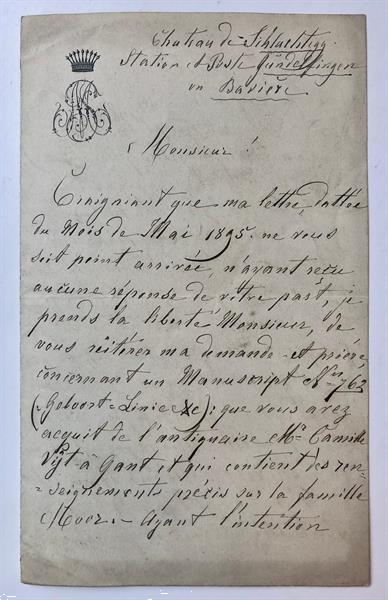 Chateau de Schlachtegg
Station et Poste Gundelfingen
en Bavière
Monsieur!
Craigniant que ma lettre, dattée
du Mois de Mai 1895. ne vous
soit point arrivée, n'ayant reçu
aucune réponse de vôtre part, je
prends la liberté Monsieur, de
vous réitérer ma demande et prière,
concernant un Manuscript Nº 762
(Geloort-Linie &c): que vous avez
acquit de l'antiquaire Mr Camille
Vijt à Gant, et qui contient des ren-
=seignements précis sur la famille
Moor. - Ayant l'intention